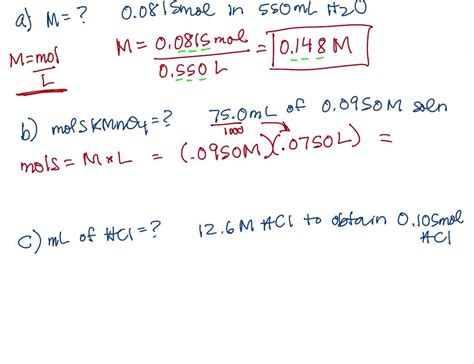 a) M = ? 0.0815mol in 550mL H2O
M = mol / L M = 0.0815mol / 0.550 L = 0.148 M
b) mols KMnO4 = ? 75.0mL of 0.0950M soln
1000
mols = M * L = (.0950M)(.0750L) =
c) mL of HCl = ? 12.6M HCl to obtain 0.105mol
HCl